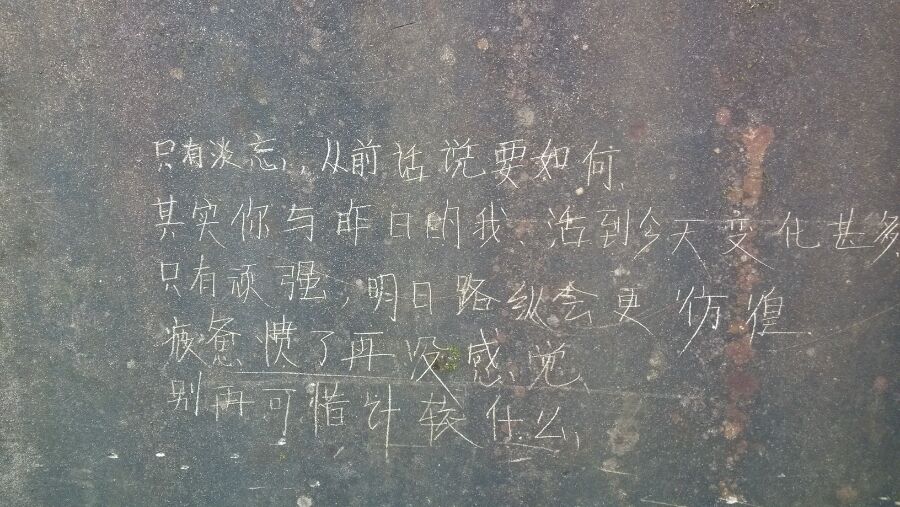 只有淡忘,,从前话说要如何、
其实你与昨日的我、活到今天变化甚多
只有顽强,明日路纵会更彷徨
疲惫惯了再没感觉、
别再可惜计较什么,